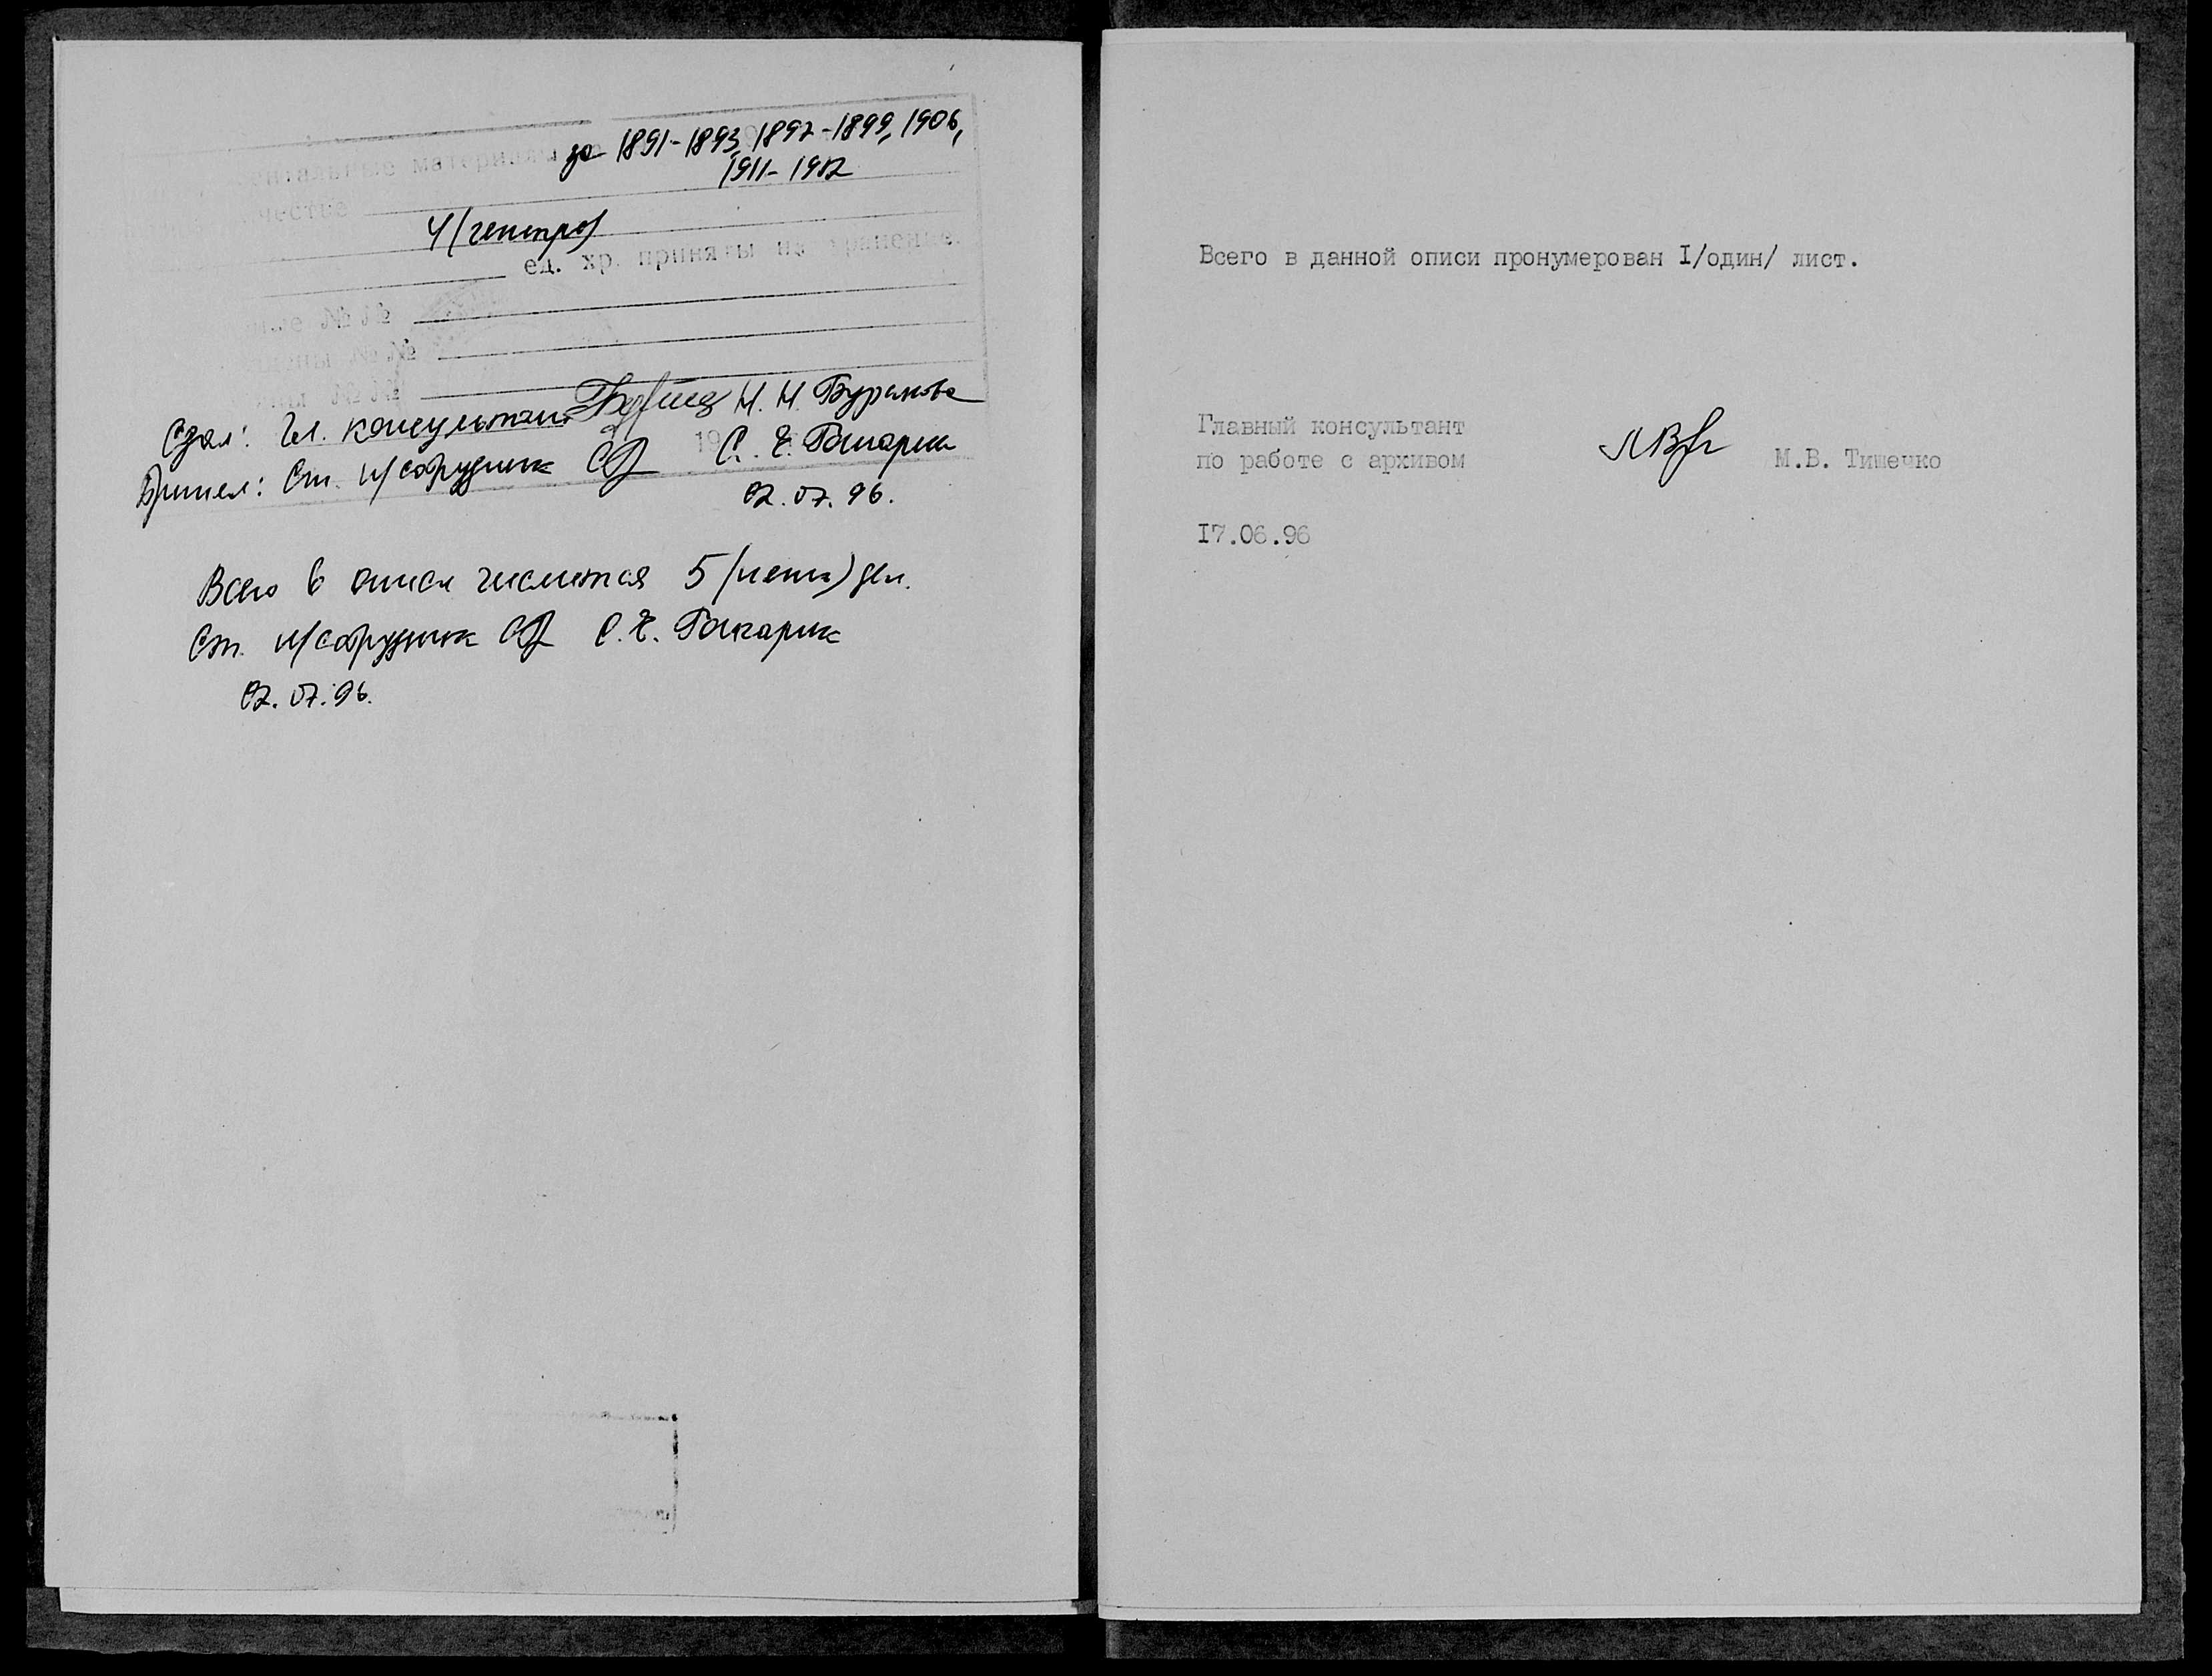 за 1891-1893, 1897-1899, 1906,
1911-1912
материалы
4 (четыре)
ед. хр. приняты на хранение.
№ №
№ №
№ №
Сдал: Гл. консультант Н. Н. Буранова
Принял: Ст. н/сотрудник С. Е.
02.07.96.
Всего в описи числится 5 (пять) дел.
Ст. н/сотрудник С. Е.
02.07.96.
Всего в данной описи пронумерован I/один/ лист.
Главный консультант
по работе с архивом М.В. Тишечко
I7.06.96